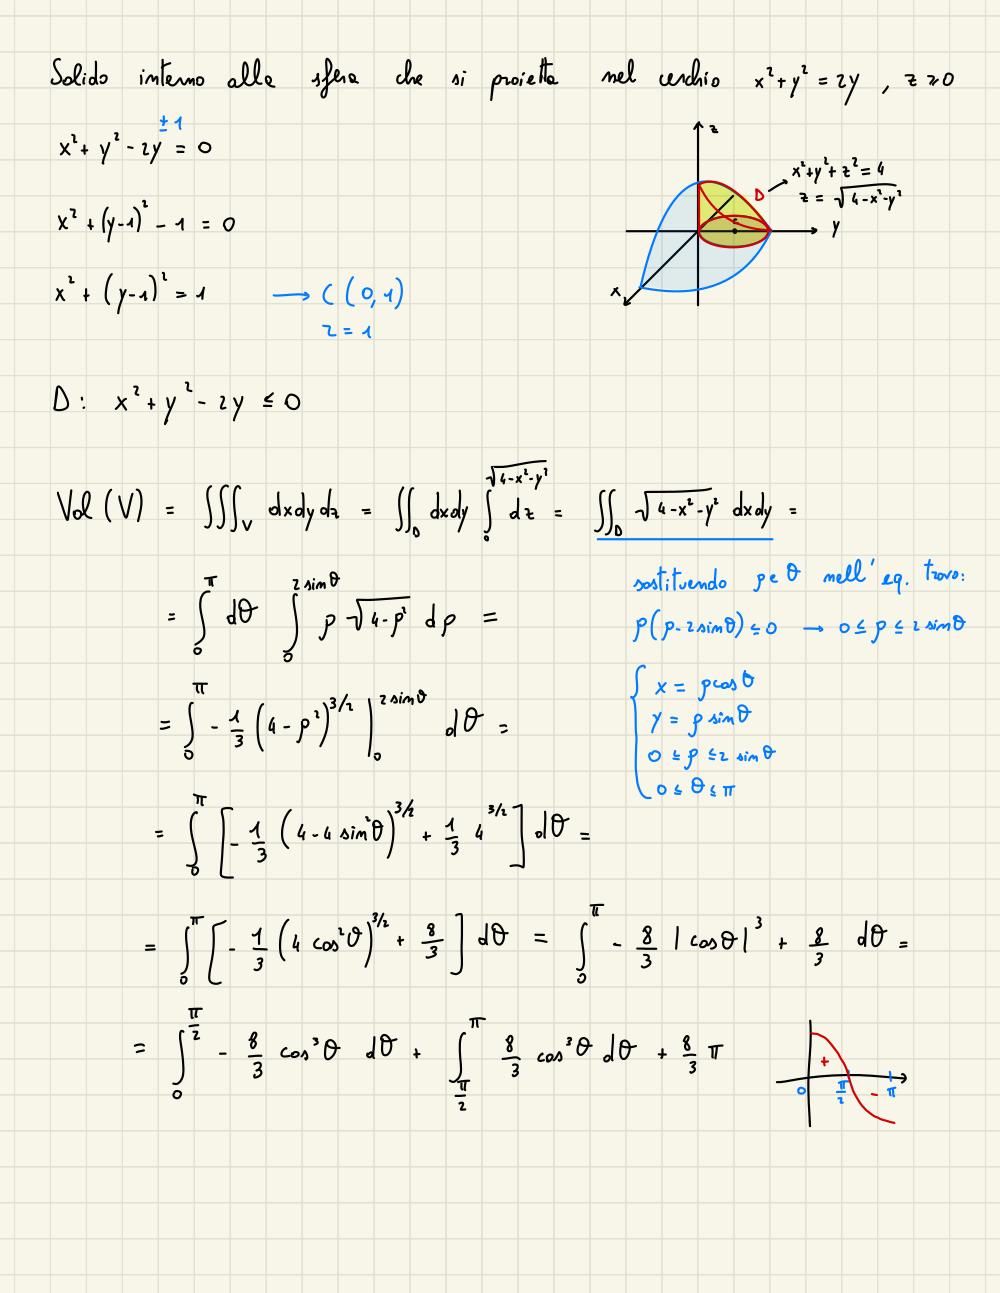 Solido interno alla sfera che si proietta nel cerchio x²+y² = 2y , z ≥ 0
± 1
x² + y² - 2y = 0
x² + (y-1)² - 1 = 0
x² + (y-1)² = 1 → C (0,1)
r = 1
z
D → x²+y²+z² = 4
z = √(4-x²-y²)
y
x
D : x² + y² - 2y ≤ 0
Vol (V) = ∭_V dxdydz = ∬_D dxdy ∫_0^{√(4-x²-y²)} dz = ∬_D √(4-x²-y²) dxdy =
= ∫_0^π dθ ∫_0^{2 sinθ} ρ √(4-ρ²) dρ =
sostituendo ρ e θ nell'eq. trovo:
ρ(ρ-2sinθ) ≤ 0 → 0 ≤ ρ ≤ 2 sinθ
{ x = ρcosθ
y = ρ sinθ
0 ≤ ρ ≤ 2 sinθ
0 ≤ θ ≤ π
= ∫_0^π - 1/3 (4-ρ²)^{3/2} |_0^{2 sinθ} dθ =
= ∫_0^π [ - 1/3 (4-4 sin²θ)^{3/2} + 1/3 4^{3/2} ] dθ =
= ∫_0^π [ - 1/3 (4 cos²θ)^{3/2} + 8/3 ] dθ = ∫_0^π - 8/3 |cosθ|³ + 8/3 dθ =
= ∫_0^{π/2} - 8/3 cos³θ dθ + ∫_{π/2}^π 8/3 cos³θ dθ + 8/3 π
+
0 π/2 - π